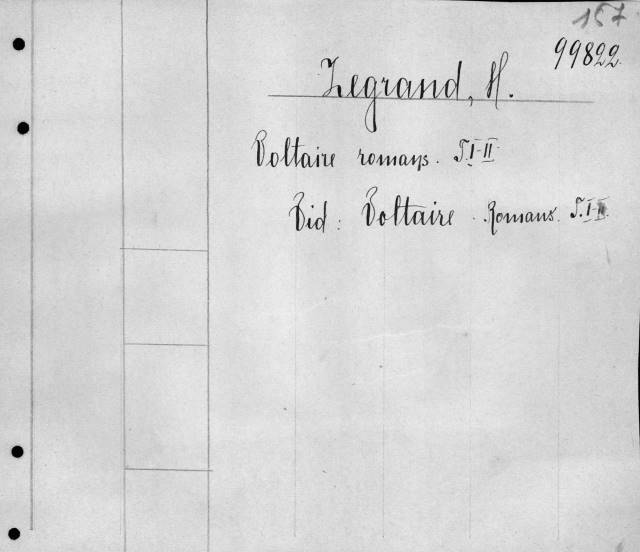 157
99822.
Legrand, H.
Voltaire romans. T.I-II
Vid: Voltaire. Romans. T.I-II.